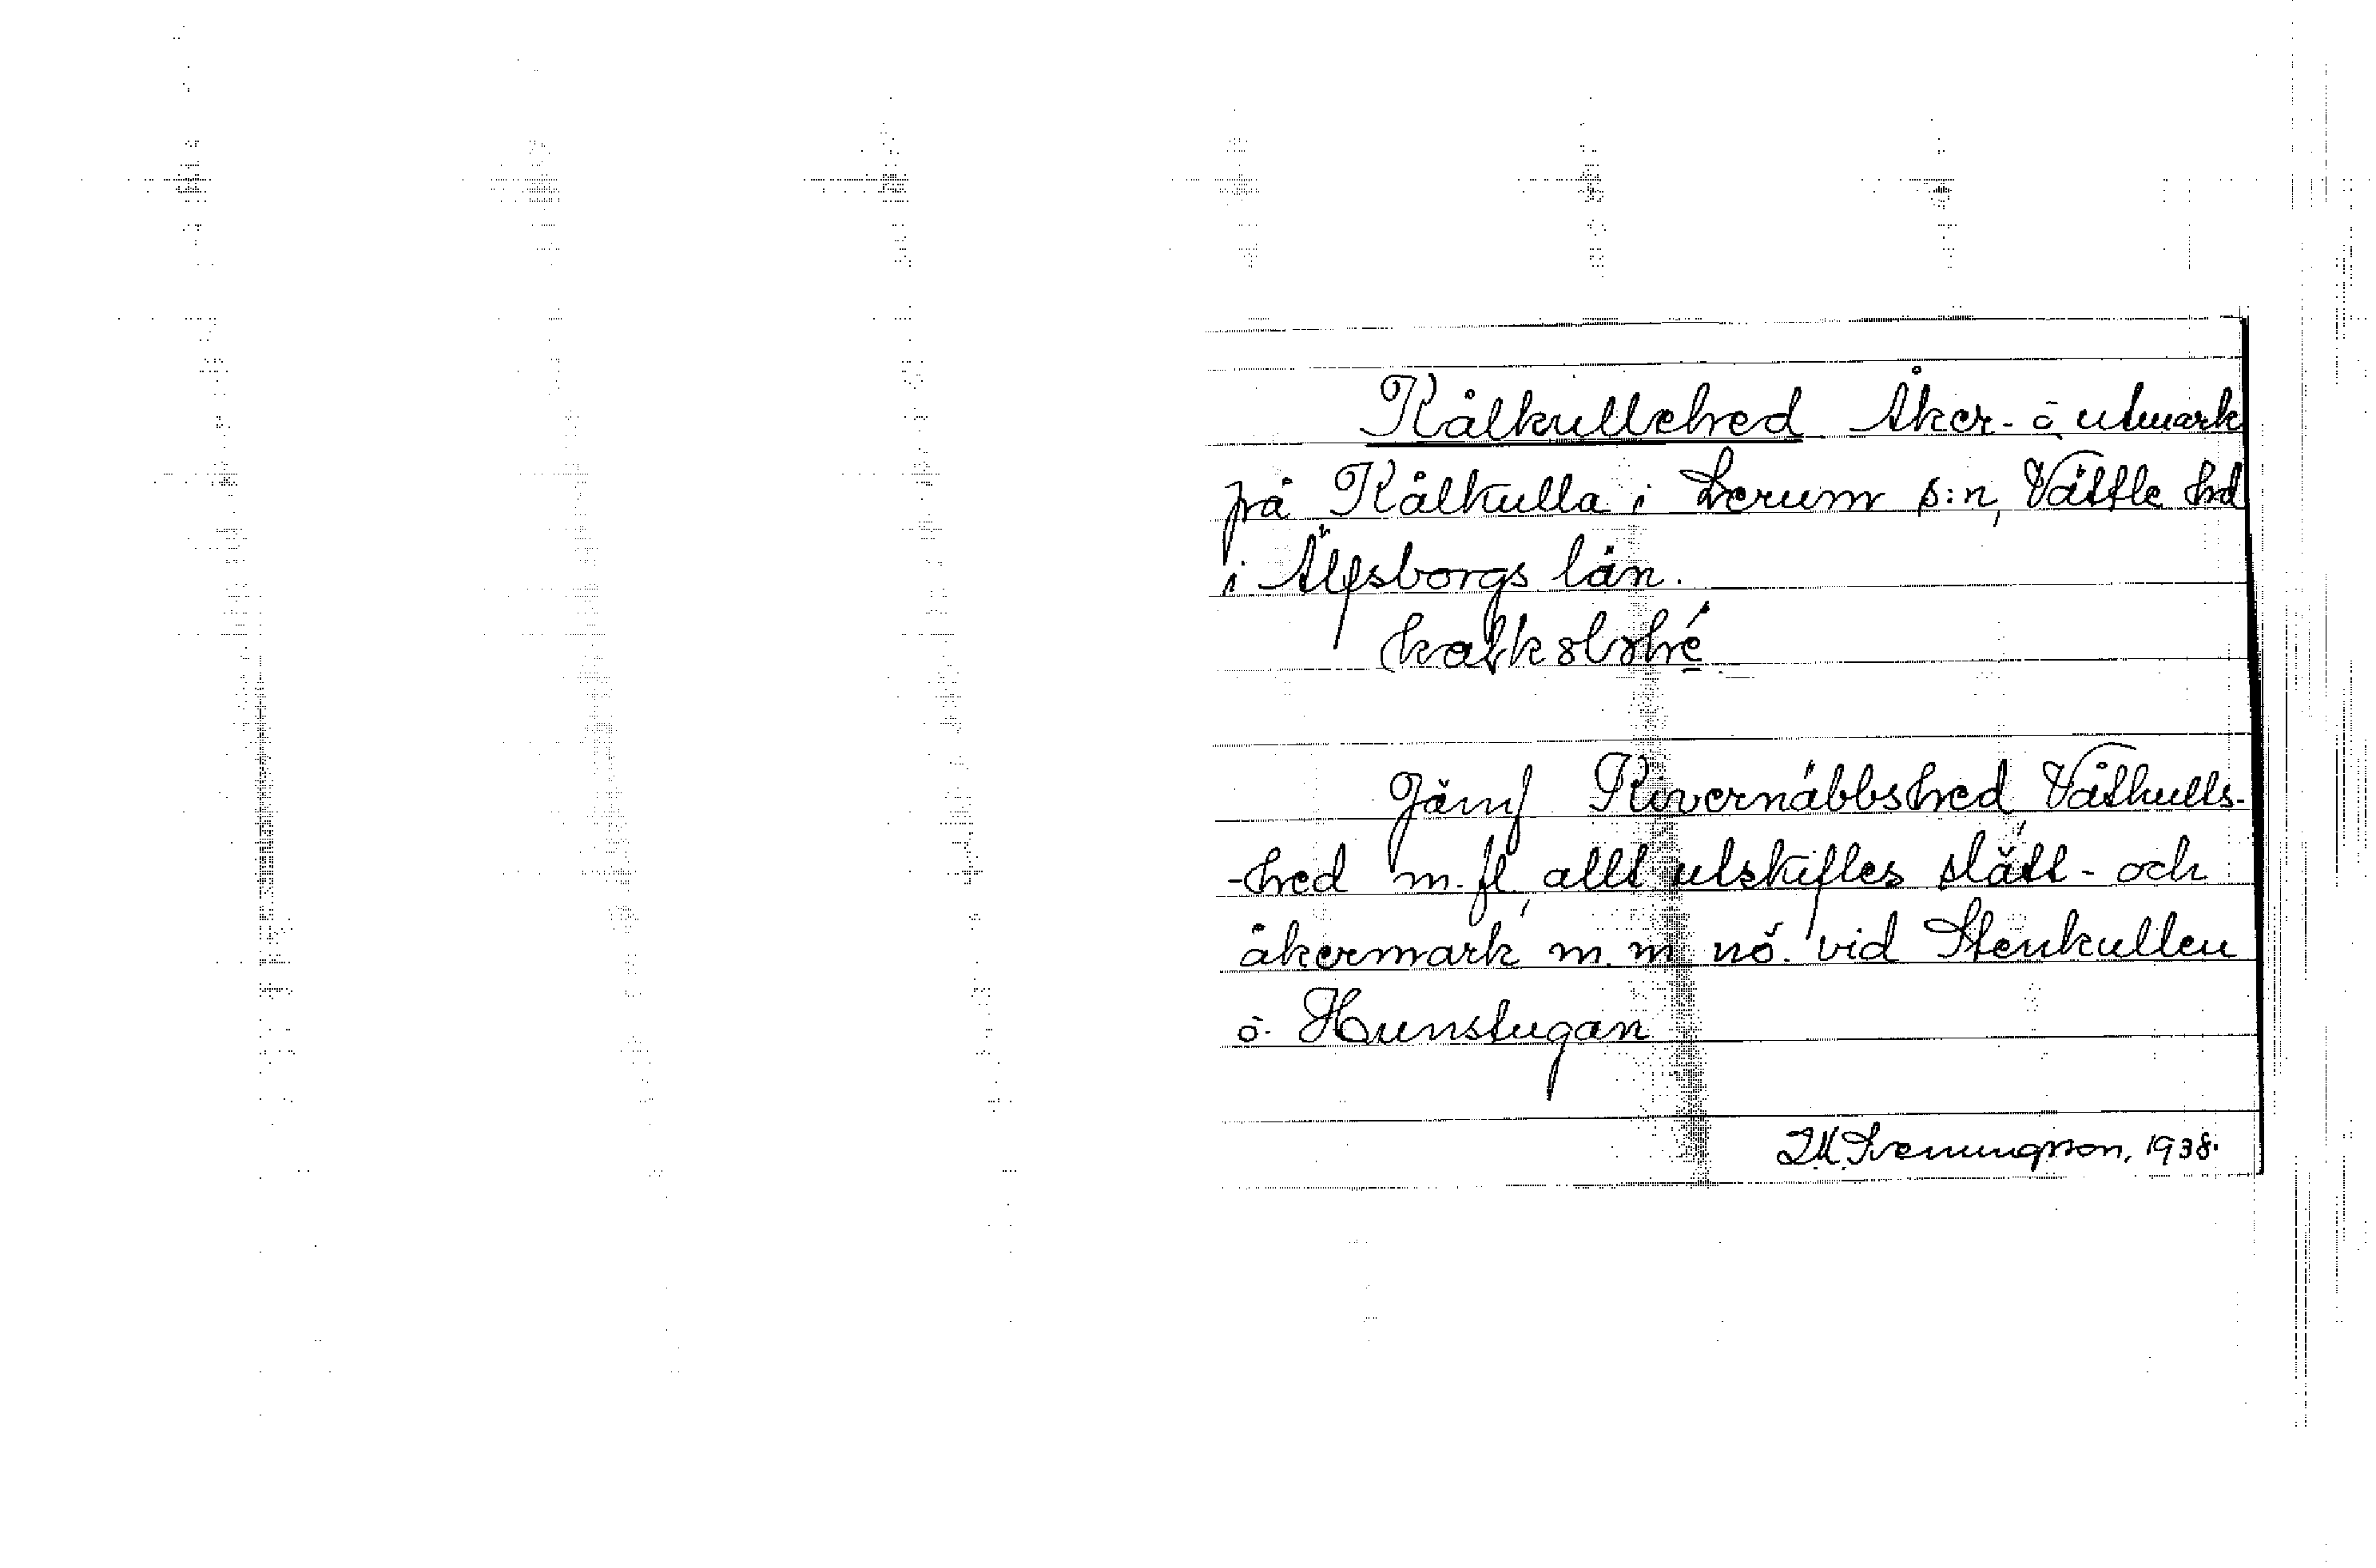 Kålkullehed Åker- o utmark
på Kålkulla i Lerum s:n, Vättle hd
i Älfsborgs län.
Jämf Rivernäbbshed, Våtkulls-
-hed m.fl, allt utskiftes slätt- och
åkermark m.m nö. vid Stenkullen
o. Hunstugan
Svenungsson, 1938.